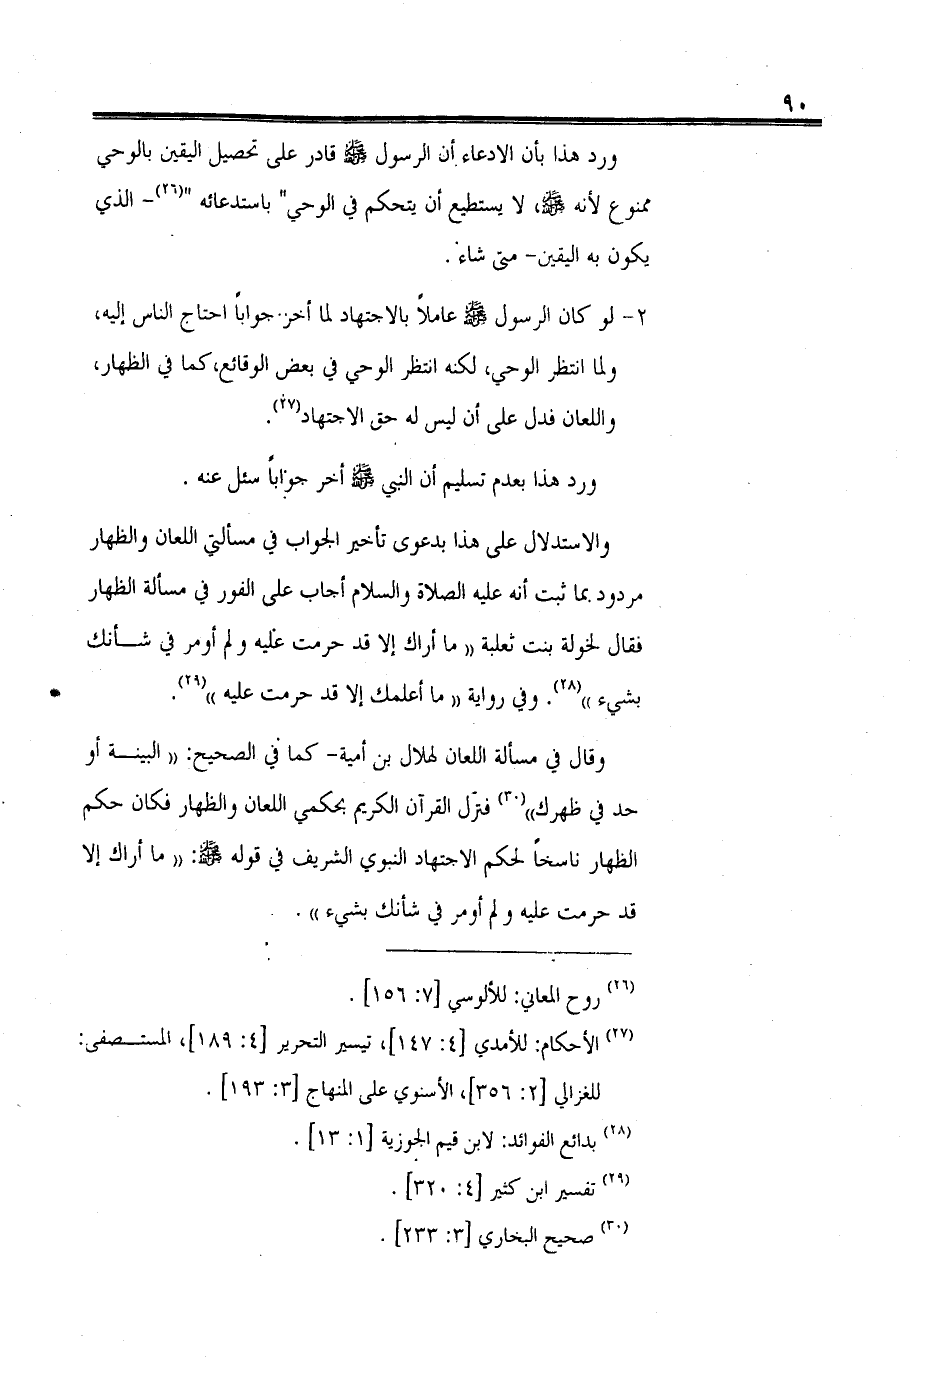 ٩٠
ورد هذا بأن الادعاء أن الرسول ﷺ قادر على تحصيل اليقين بالوحي
ممنوع لأنه ﷺ، لا يستطيع أن يتحكم في الوحي" باستدعائه "(٢٦)- الذي
يكون به اليقين- متى شاء .
٢- لو كان الرسول ﷺ عاملاً بالاجتهاد لما أخر جواباً احتاج الناس إليه،
ولما انتظر الوحي، لكنه انتظر الوحي في بعض الوقائع،كما في الظهار،
واللعان فدل على أن ليس له حق الاجتهاد(٢٧).
ورد هذا بعدم تسليم أن النبي ﷺ أخر جواباً سئل عنه .
والاستدلال على هذا بدعوى تأخير الجواب في مسألتي اللعان والظهار
مردود بما ثبت أنه عليه الصلاة والسلام أجاب على الفور في مسألة الظهار
فقال لخولة بنت ثعلبة (( ما أراك إلا قد حرمت عليه و لم أومر في شـــأنك
بشيء ))(٢٨). وفي رواية (( ما أعلمك إلا قد حرمت عليه ))(٢٩).
وقال في مسألة اللعان لهلال بن أمية- كما في الصحيح: (( البينـــة أو
حد في ظهرك))(٣٠) فنزّل القرآن الكريم بحكمي اللعان والظهار فكان حكم
الظهار ناسخاً لحكم الاجتهاد النبوي الشريف في قوله ﷺ: (( ما أراك إلا
قد حرمت عليه و لم أومر في شأنك بشيء )) .
(٢٦) روح المعاني: للألوسي [٧: ١٥٦] .
(٢٧) الأحكام: للأمدي [٤: ١٤٧]، تيسير التحرير [٤: ١٨٩]، المستــصفى:
للغزالي [٢: ٣٥٦]، الأسنوي على المنهاج [٣: ١٩٣] .
(٢٨) بدائع الفوائد: لابن قيم الجوزية [١: ١٣] .
(٢٩) تفسير ابن كثير [٤: ٣٢٠] .
(٣٠) صحيح البخاري [٣: ٢٣٣] .